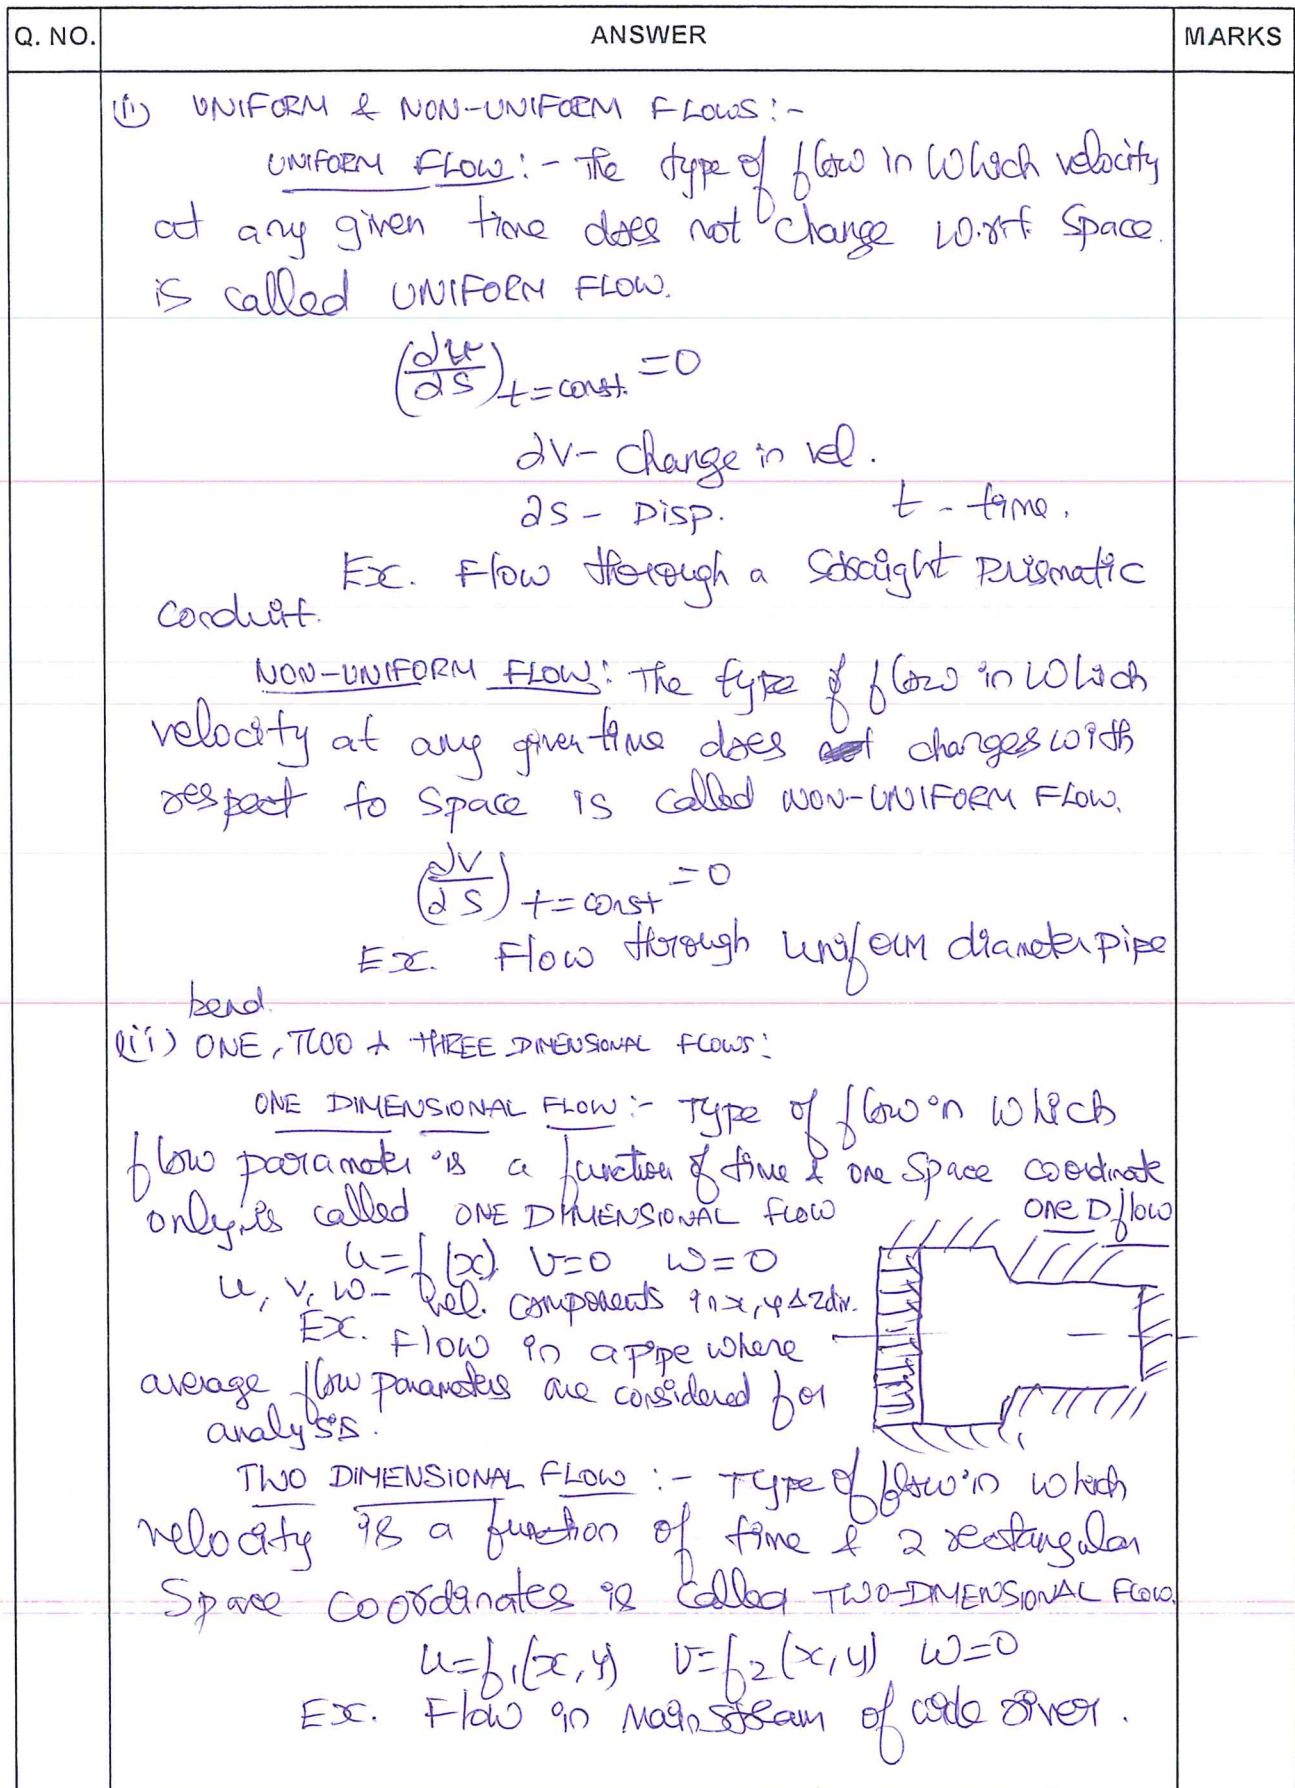 Q. NO. ANSWER MARKS
(i) UNIFORM & NON-UNIFORM FLOWS :-
UNIFORM FLOW :- The type of flow in which velocity
at any given time does not change w.r.t. space.
is called UNIFORM FLOW.
(∂v/∂s) t=const. =0
∂V- change in vel.
∂S- Disp. t - time.
Ex. Flow through a straight Prismatic
Conduit.
NON-UNIFORM FLOW: The type of flow in which
velocity at any given time does not changes with
respect to space is called NON-UNIFORM FLOW.
(∂V/∂S) t=const =0
Ex. Flow through uniform diameter pipe
bend.
(ii) ONE, TWO & THREE DIMENSIONAL FLOWS:
ONE DIMENSIONAL FLOW :- Type of flow in which
flow parameter is a function of time & one space coordinate
only, is called ONE DIMENSIONAL FLOW
one D flow
u=f(x) v=0 w=0
u, v, w- Vel. components in x, y & z dir.
Ex. Flow in a pipe where
average flow parameters are considered for
analysis.
TWO DIMENSIONAL FLOW :- Type of flow in which
velocity is a function of time & 2 rectangular
Space coordinates is called TWO-DIMENSIONAL FLOW.
u=f₁(x,y) v=f₂(x,y) w=0
Ex. Flow in Main stream of wide river.